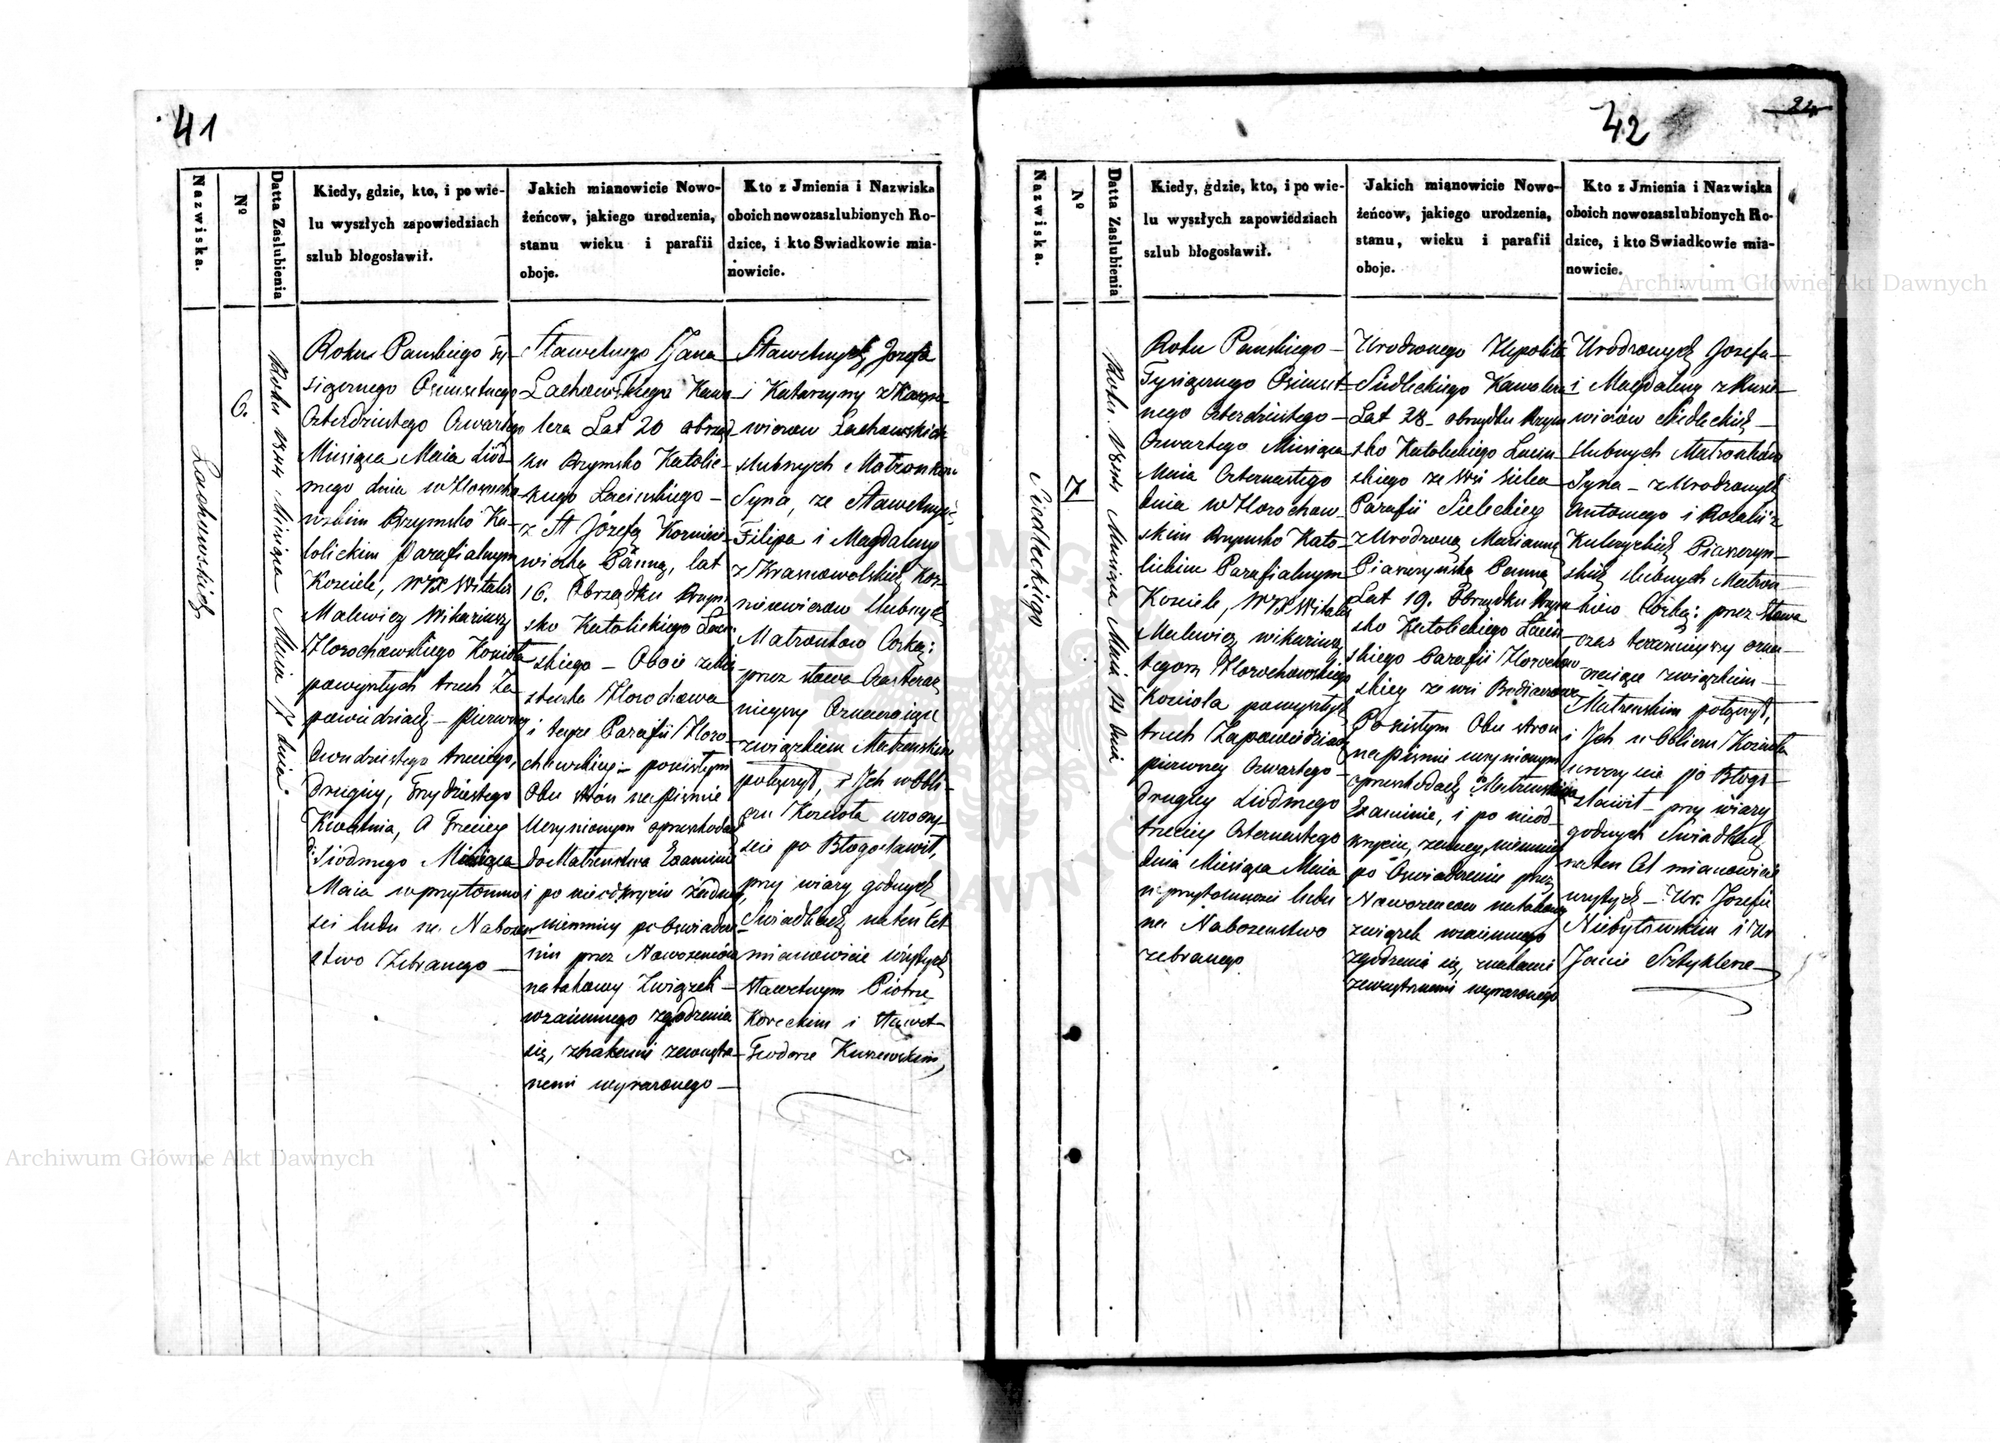 41
Nazwiska.
Nº
Datta Zaslubienia
Kiedy, gdzie, kto, i po wie-
lu wyszłych zapowiedziach
szlub błogosławił.
Jakich mianowicie Nowo-
żeńcow, jakiego urodzenia,
stanu wieku i parafii
oboje.
Kto z Jmienia i Nazwiska
oboich nowozaszlubionych Ro-
dzice, i kto Swiadkowie mia-
nowicie.
Lachowskich
6.
Roku 1844 Miesiąca Maia 7 dnia
Roku Panskiego Ty-
siącznego Osimsetnego
Czterdziestego Czwartego
Miesiąca Maia Siód-
mego dnia w Horocho-
wskim Rzymsko Ka-
tolickim Parafialnym
Kosciele, WJX Witalis
Malewicz Wikariusz
Horochowskiego Koscioła
po wyszłych trzech Za-
powiedziach — pierwszey
dwudziestego trzeciego,
drugiey, Trzydziestego
Kwietnia, A Trzeciey
Siodmego Miesiąca
Maia w przytomno-
sci ludu na Nabożen-
stwo Zebranego —
Sławetnego Jana
Lachowskiego Kawa-
lera Lat 20 obrząd-
ku Rzymsko Katolic-
kiego Łacinskiego —
z St Józefą Korniie-
wiczką Panną, lat
16. Obrządku Rzym-
sko Katolickiego Łaci-
skiego — Oboie z Mia-
steczka Horochowa
i teyże Parafii Horo-
chowskiey — po ścisłym
Obu stron na piśmie
Uczynionym o przeszkodach
do Małżenstwa Examinie
i po nieodkryciu żadney,
niemniey po Oswiadcze-
niu przez Nowożencow
na takowy Związek —
wzaiemnego zgodzenia
się, znakami zewnętrz-
nemi wyrażonego —
Sławetnych Jozefa
i Katarzyny z Karpo-
wiczow Lachowskich
slubnych Małżonkow
Syna, ze Sławetnych
Filipa i Magdaleny
z Krasnowolskich Kor-
niiewiczow slubnych
Małżonkow Corką;
przez słowa Czas teraz
nieyszy Oznaczaiące
związkiem Małżenskim
połączył, i Ich w Obli-
czu Kosciola uroczy-
scie po Błogosławił,
przy wiary godnych
Swiadkach na ten Cel
mianowicie wzytych
Sławetnym Piotrze
Koreckim i Sławet-
Teodorze Kuszewskim,
42
24
Nazwiska.
Nº
Datta Zaslubienia
Kiedy, gdzie, kto, i po wie-
lu wyszłych zapowiedziach
szlub błogosławił.
Jakich mianowicie Nowo-
żeńcow, jakiego urodzenia,
stanu, wieku i parafii
oboje.
Kto z Jmienia i Nazwiska
oboich nowozaszlubionych Ro-
dzice, i kto Swiadkowie mia-
nowicie.
Siedleckiego
7
Roku 1844 Miesiąca Maia 14 dnia
Roku Panskiego —
Tysiącznego Osimset-
nego Czterdziestego —
Czwartego Miesiąca
Maia Czternastego
dnia w Horochow-
skim Rzymsko Kato-
lickim Parafialnym
Kosciele, WJX Witalis
Malewicz wikariusz
tegoż Horochowskiego
Kosciola po wyszłych
trzech Zapowiedziach
pierwszey Czwartego —
drugiey Siodmego
trzeciey Czternastego
dnia Miesiąca Maia
w przytomnosci ludu
na Nabożenstwo
zebranego
Urodzonego Hypolita
Siedleckiego Kawalera
Lat 28 — obrządku Rzym-
sko Katolickiego Łacin-
skiego ze wsi Sielca
Parafii Sieleckiey
z Urodzoną Marianną
Panną
Lat 19. Obrządku Rzym-
sko Katolickiego Łacin-
skiego Parafii Horochow-
skiey ze wsi
Po scisłym Obu stron
na piśmie uczynionym
o przeszkodach Małżenskich
Examinie, i po nieod-
kryciu żadney, niemniey
po Oswiadczeniu przez
Nowożencow na takowy
związek wzaiemnego
zgodzenia się, znakami
zewnętrznemi wyrażonego
Urodzonych Jozefa —
i Magdaleny z
Siedleckich —
slubnych Małżonkow
Syna — z Urodzonych
Antoniego i Rozalii z
slubnych Małżon-
kow Corką: przez słowa
czas terazniejszy ozna-
czaiące związkiem —
Małżenskim połączył,
i Ich w Obliczu Kosciola
uroczyscie po Błogo-
sławił — przy wiary
godnych Swiadkach
na ten Cel mianowicie
wzytych — Ur. Jozefie
Niebyławskim i Ur
Janie
Archiwum Główne Akt Dawnych
Archiwum Główne Akt Dawnych